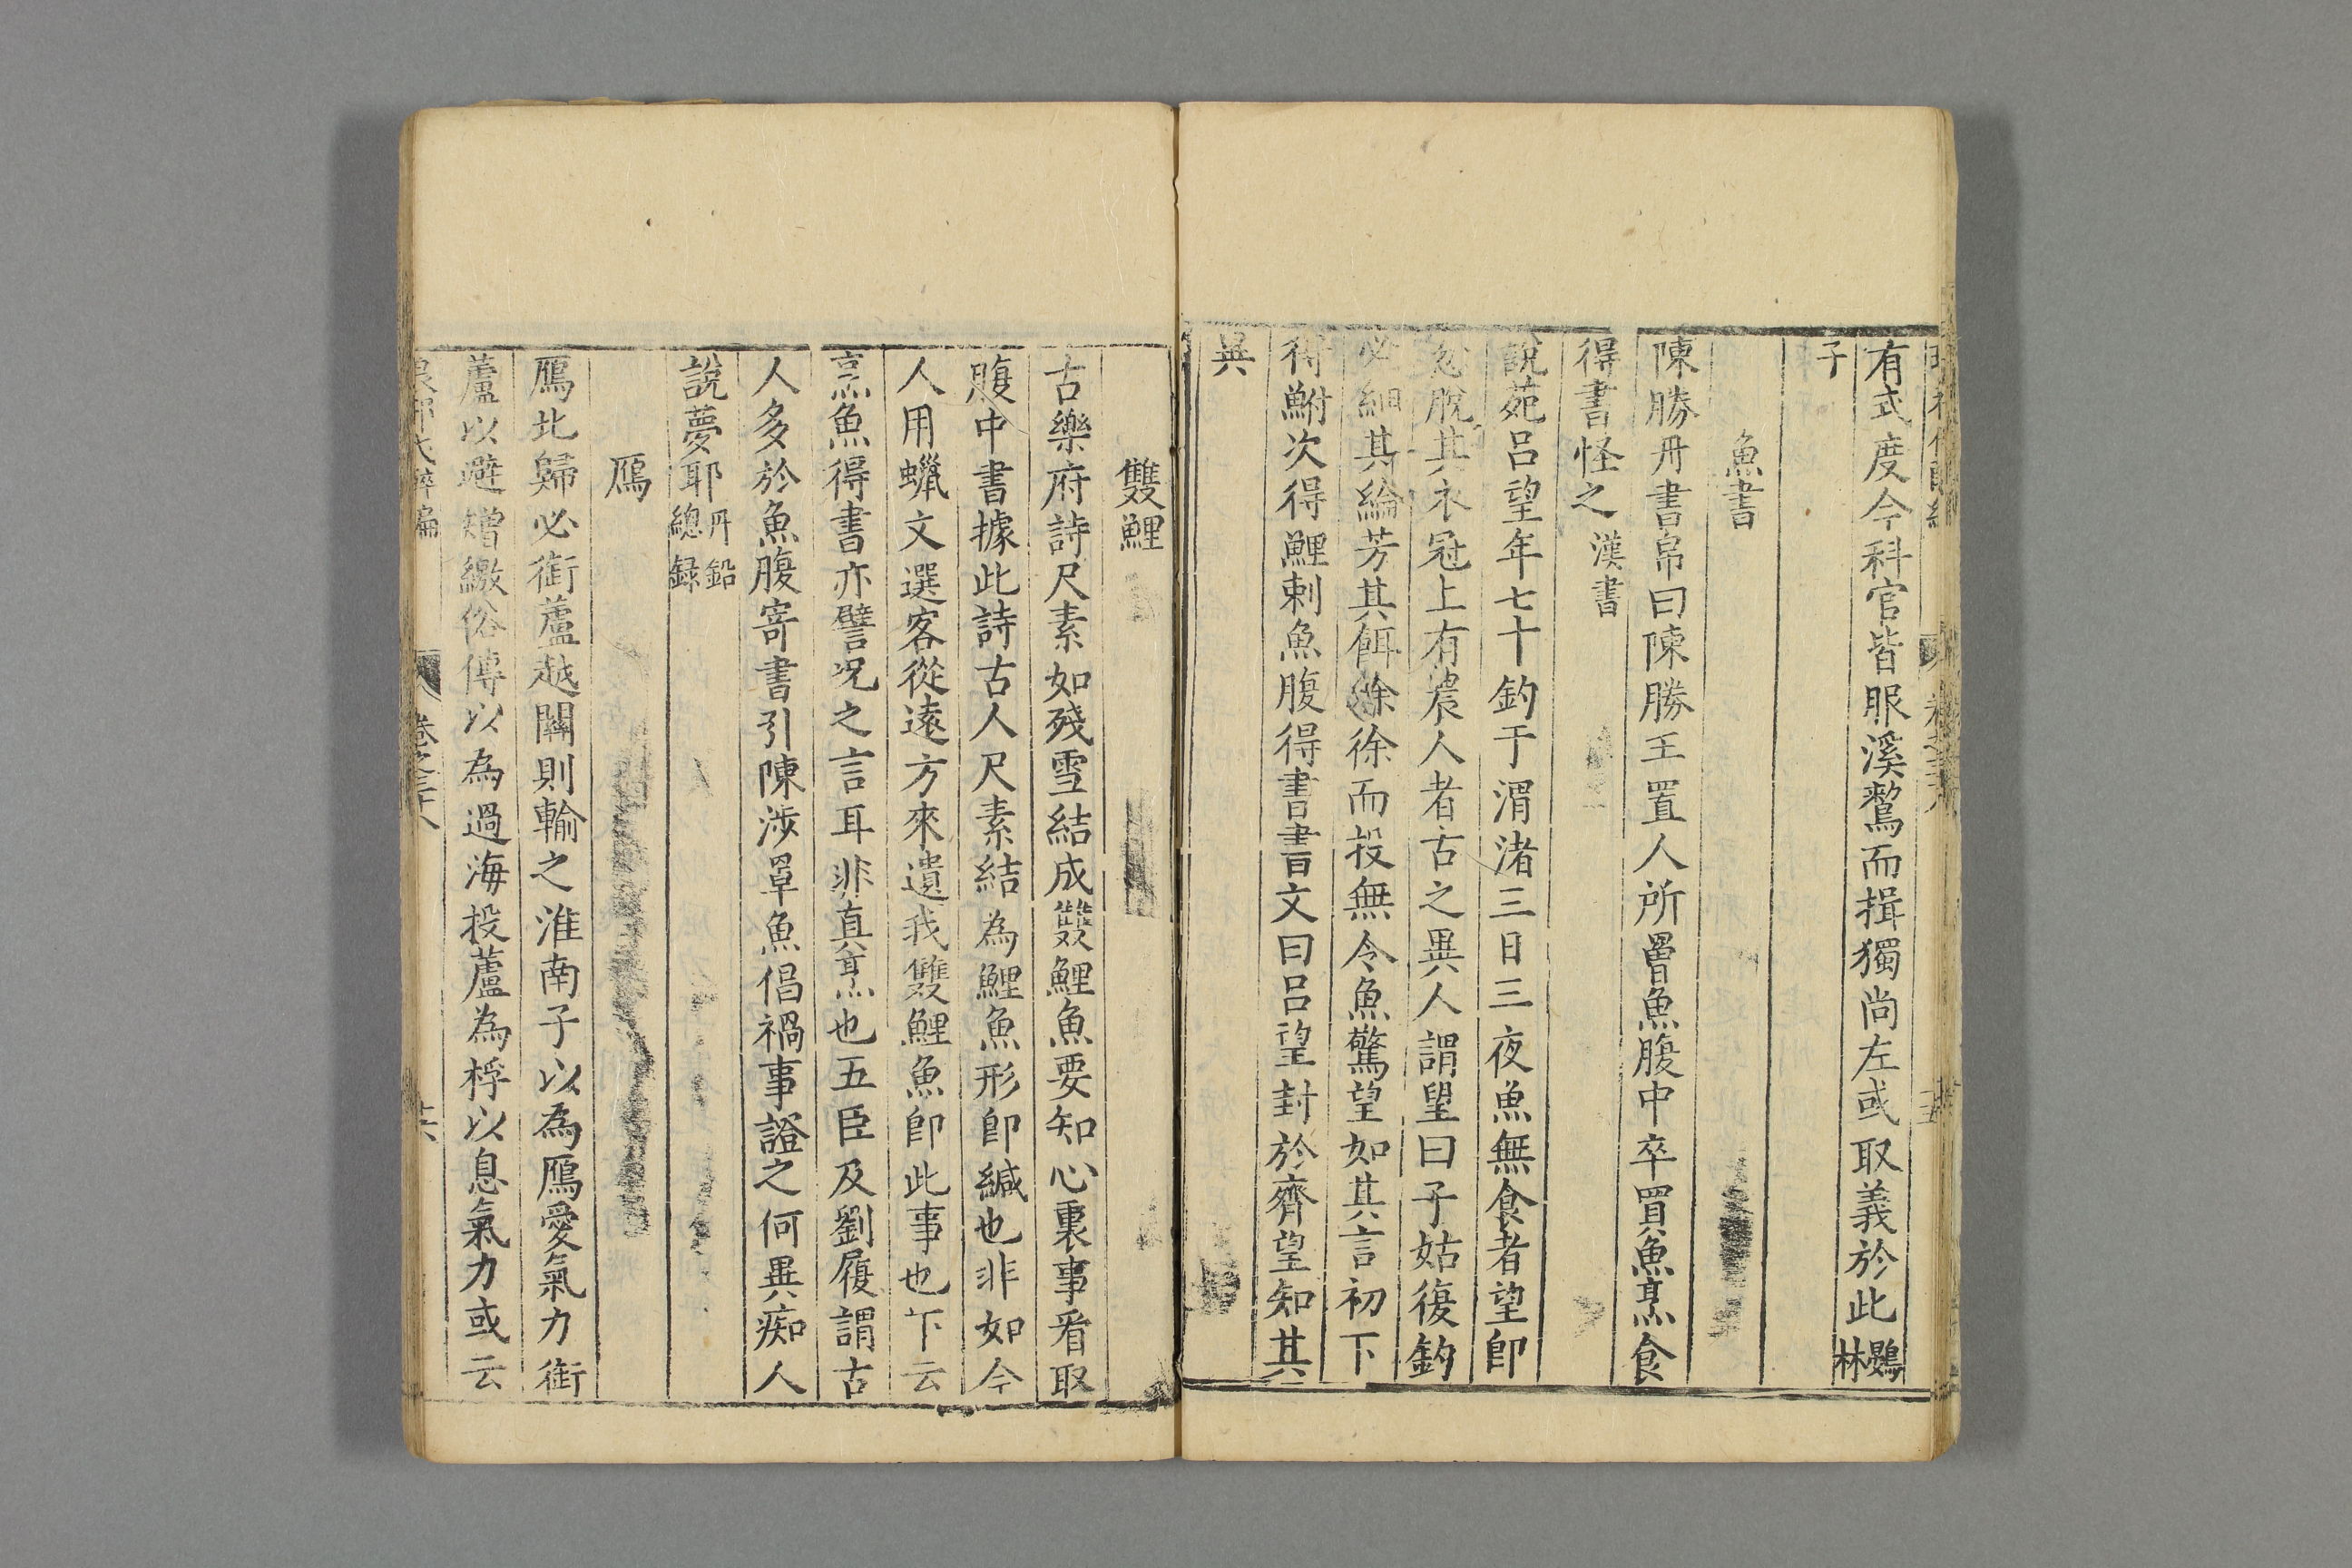 有式度今科官皆服溪鶩而揖獨尚左或取義於此鷃林
子
魚書
陳勝丹書帛曰陳勝王置人所罾魚腹中卒買魚烹食
得書怪之漢書
說苑呂望年七十釣于渭渚三日三夜魚無食者望即
忿脫其衣冠上有農人者古之異人謂望曰子姑復釣
必細其綸芳其餌徐徐而投無令魚驚望如其言初下
得鮒次得鯉刺魚腹得書書文曰呂望封於齊望知其
異
雙鯉
古樂府詩尺素如殘雪結成雙鯉魚要知心裏事看取
腹中書據此詩古人尺素結為鯉魚形即緘也非如今
人用蠟文選客從遠方來遺我雙鯉魚即此事也下云
烹魚得書亦譬况之言耳非真烹也五臣及劉履謂古
人多於魚腹寄書引陳涉罩魚倡禍事證之何異痴人
說夢耶丹鉛總録
鴈
鴈北歸必銜蘆越關則輸之淮南子以為鴈愛氣力銜
蘆以避矰繳俗傳以為過海投蘆為桴以息氣力或云
卷之三十八